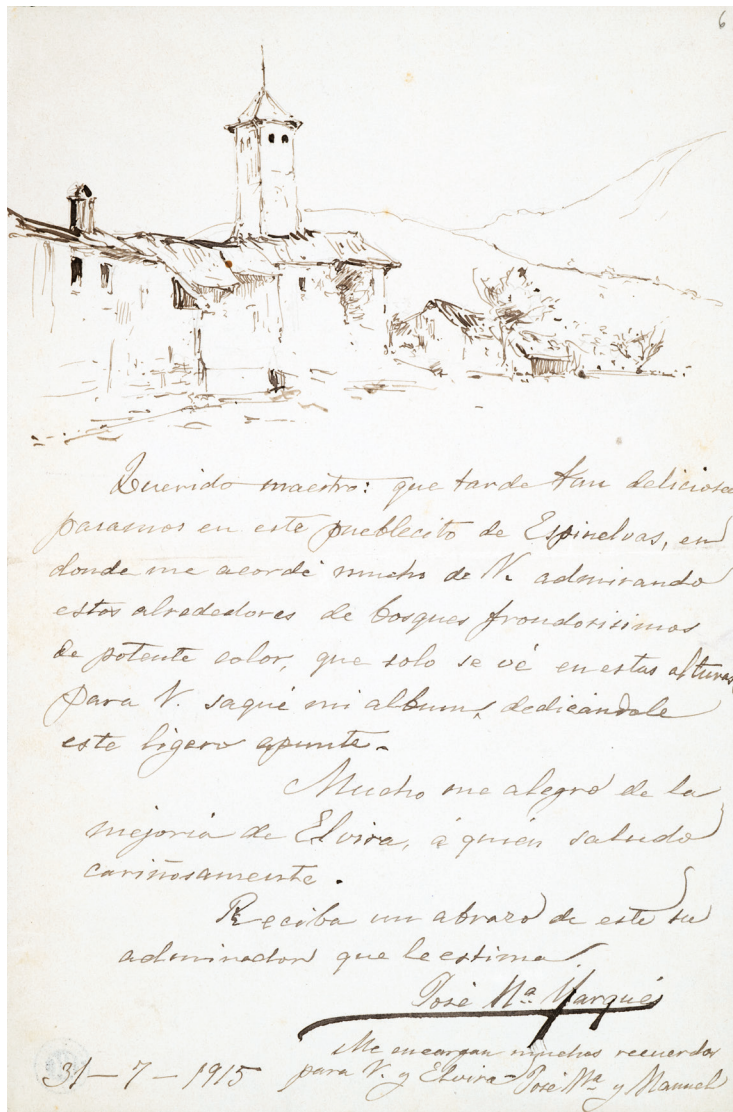 6
Querido maestro: que tarde tan deliciosa
pasamos en este pueblecito de Espinelvas, en
donde me acordé mucho de V. admirando
estos alrededores de bosques frondosisimos
de potente color, que solo se vé en estas alturas
para V. saqué mi album, dedicándole
este ligero apunte.
Mucho me alegro de la
mejoria de Elvira, á quien saludo
cariñosamente.
Reciba un abrazo de este su
admirador que le estima
José Mª Marqués
Me encargan muchos recuerdos
31-7-1915 para V. y Elvira José Mª y Manuel